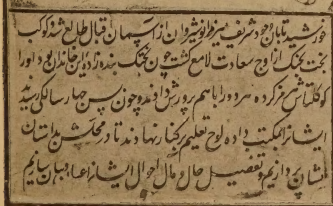 خورشید تابان وجود شریف میرزا نوشیروان از آسمان اقبال طالع شد کوکب
بخت تختک از اوج سعادت لامع گشت چون تختک بنده زاده این خاندان بود او را
کوکلتاش مقرر کرده هر دو را باهم پرورش دادند و چون بسن چهار سالگی رسیدند
ایشانرا بمکتب داده لوح تعلیم بر کنار نهادند تا در محلش بداستان
ایشان پردازیم و تفصیل حال و مآل احوال ایشانرا بیان سازیم